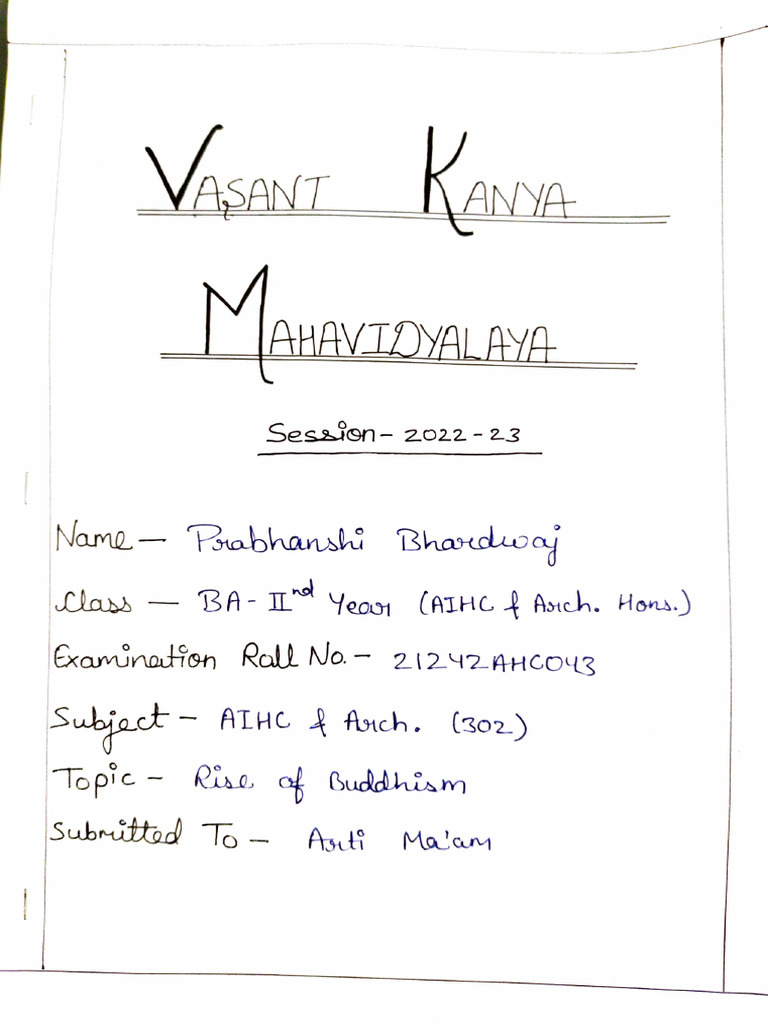 VASANT KANYA
MAHAVIDYALAYA
Session - 2022-23
Name - Prabhanshi Bhardwaj
Class - BA - IInd Year (AIHC & Arch. Hons.)
Examination Roll No. - 21242AHC043
Subject - AIHC & Arch. (302)
Topic - Rise of Buddhism
Submitted To - Arti Ma'am